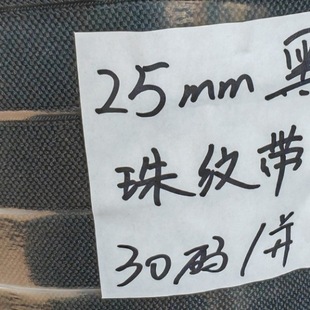 25mm黑
珠纹带
30码/并